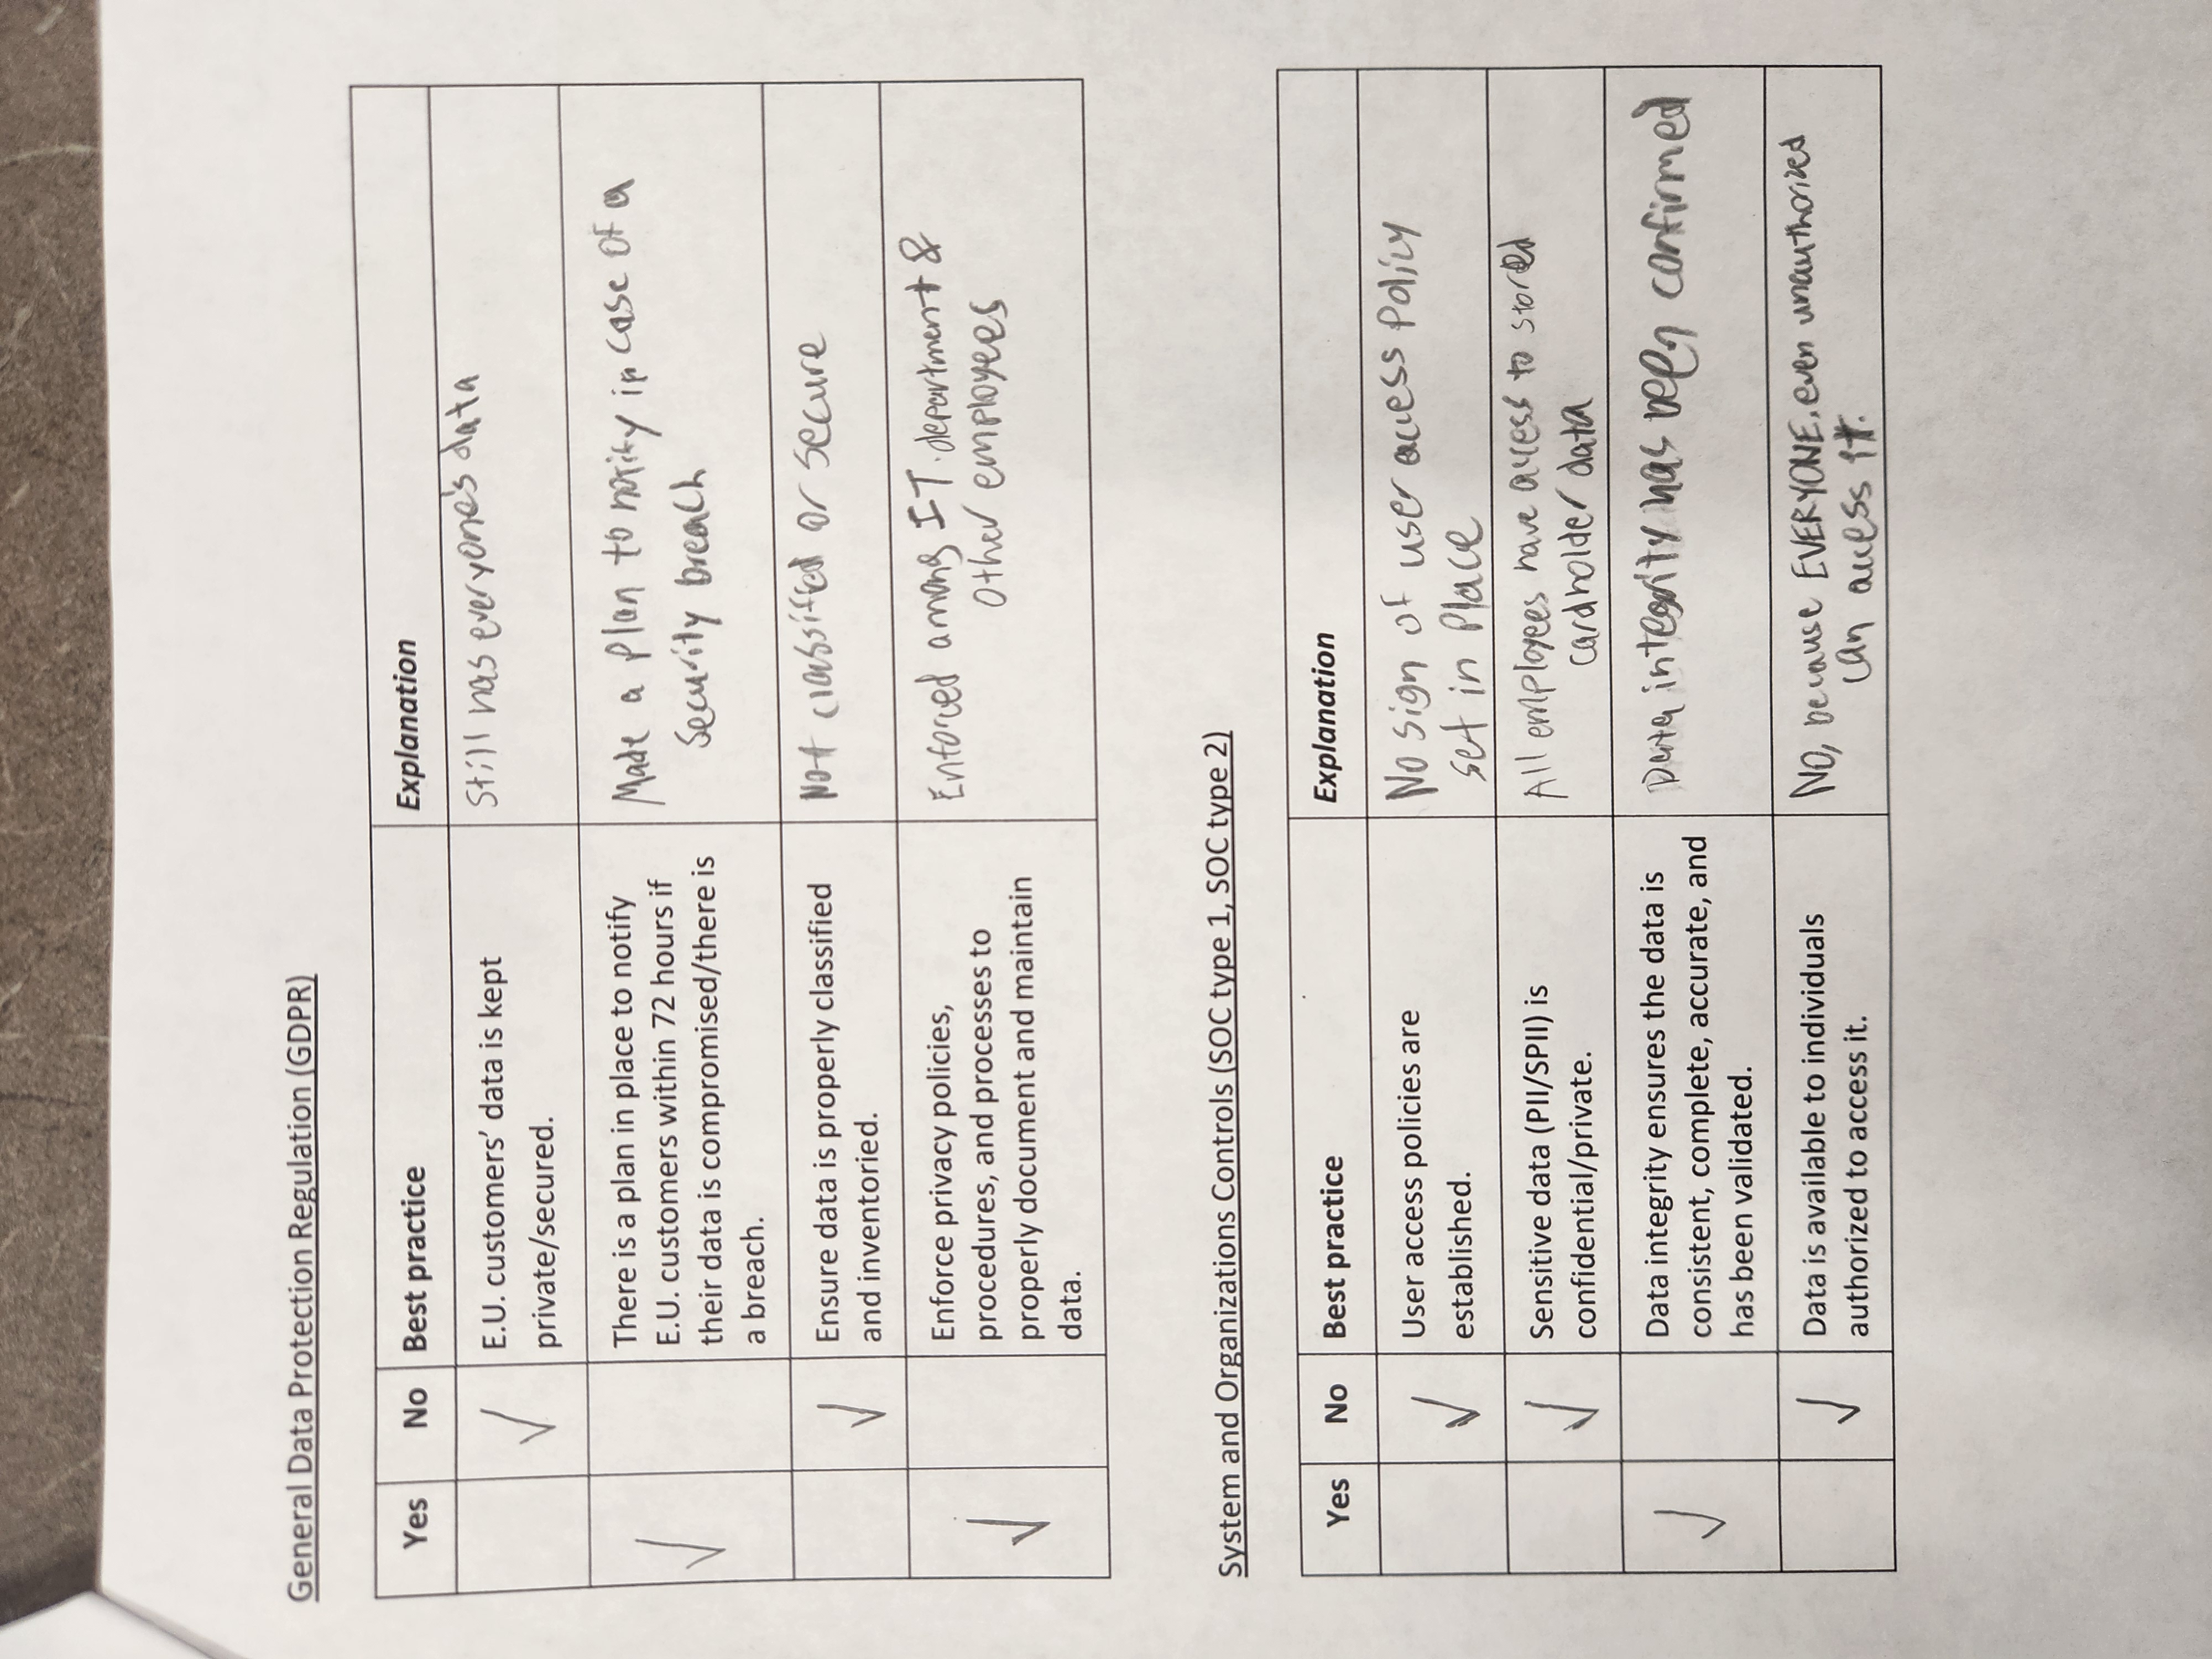 General Data Protection Regulation (GDPR)
Yes No Best practice Explanation
E.U. customers' data is kept
private/secured.
Still has everyone's data
There is a plan in place to notify
E.U. customers within 72 hours if
their data is compromised/there is
a breach.
Made a plan to notify in case of a
security breach
Ensure data is properly classified
and inventoried.
Not classified or secure
Enforce privacy policies,
procedures, and processes to
properly document and maintain
data.
Enforced among IT. department &
other employees
System and Organizations Controls (SOC type 1, SOC type 2)
Yes No Best practice Explanation
User access policies are
established.
No sign of user access policy
set in place
Sensitive data (PII/SPII) is
confidential/private.
All employees have access to stored
cardholder data
Data integrity ensures the data is
consistent, complete, accurate, and
has been validated.
Data integrity has been confirmed
Data is available to individuals
authorized to access it.
No, because EVERYONE, even unauthorized
can access it.